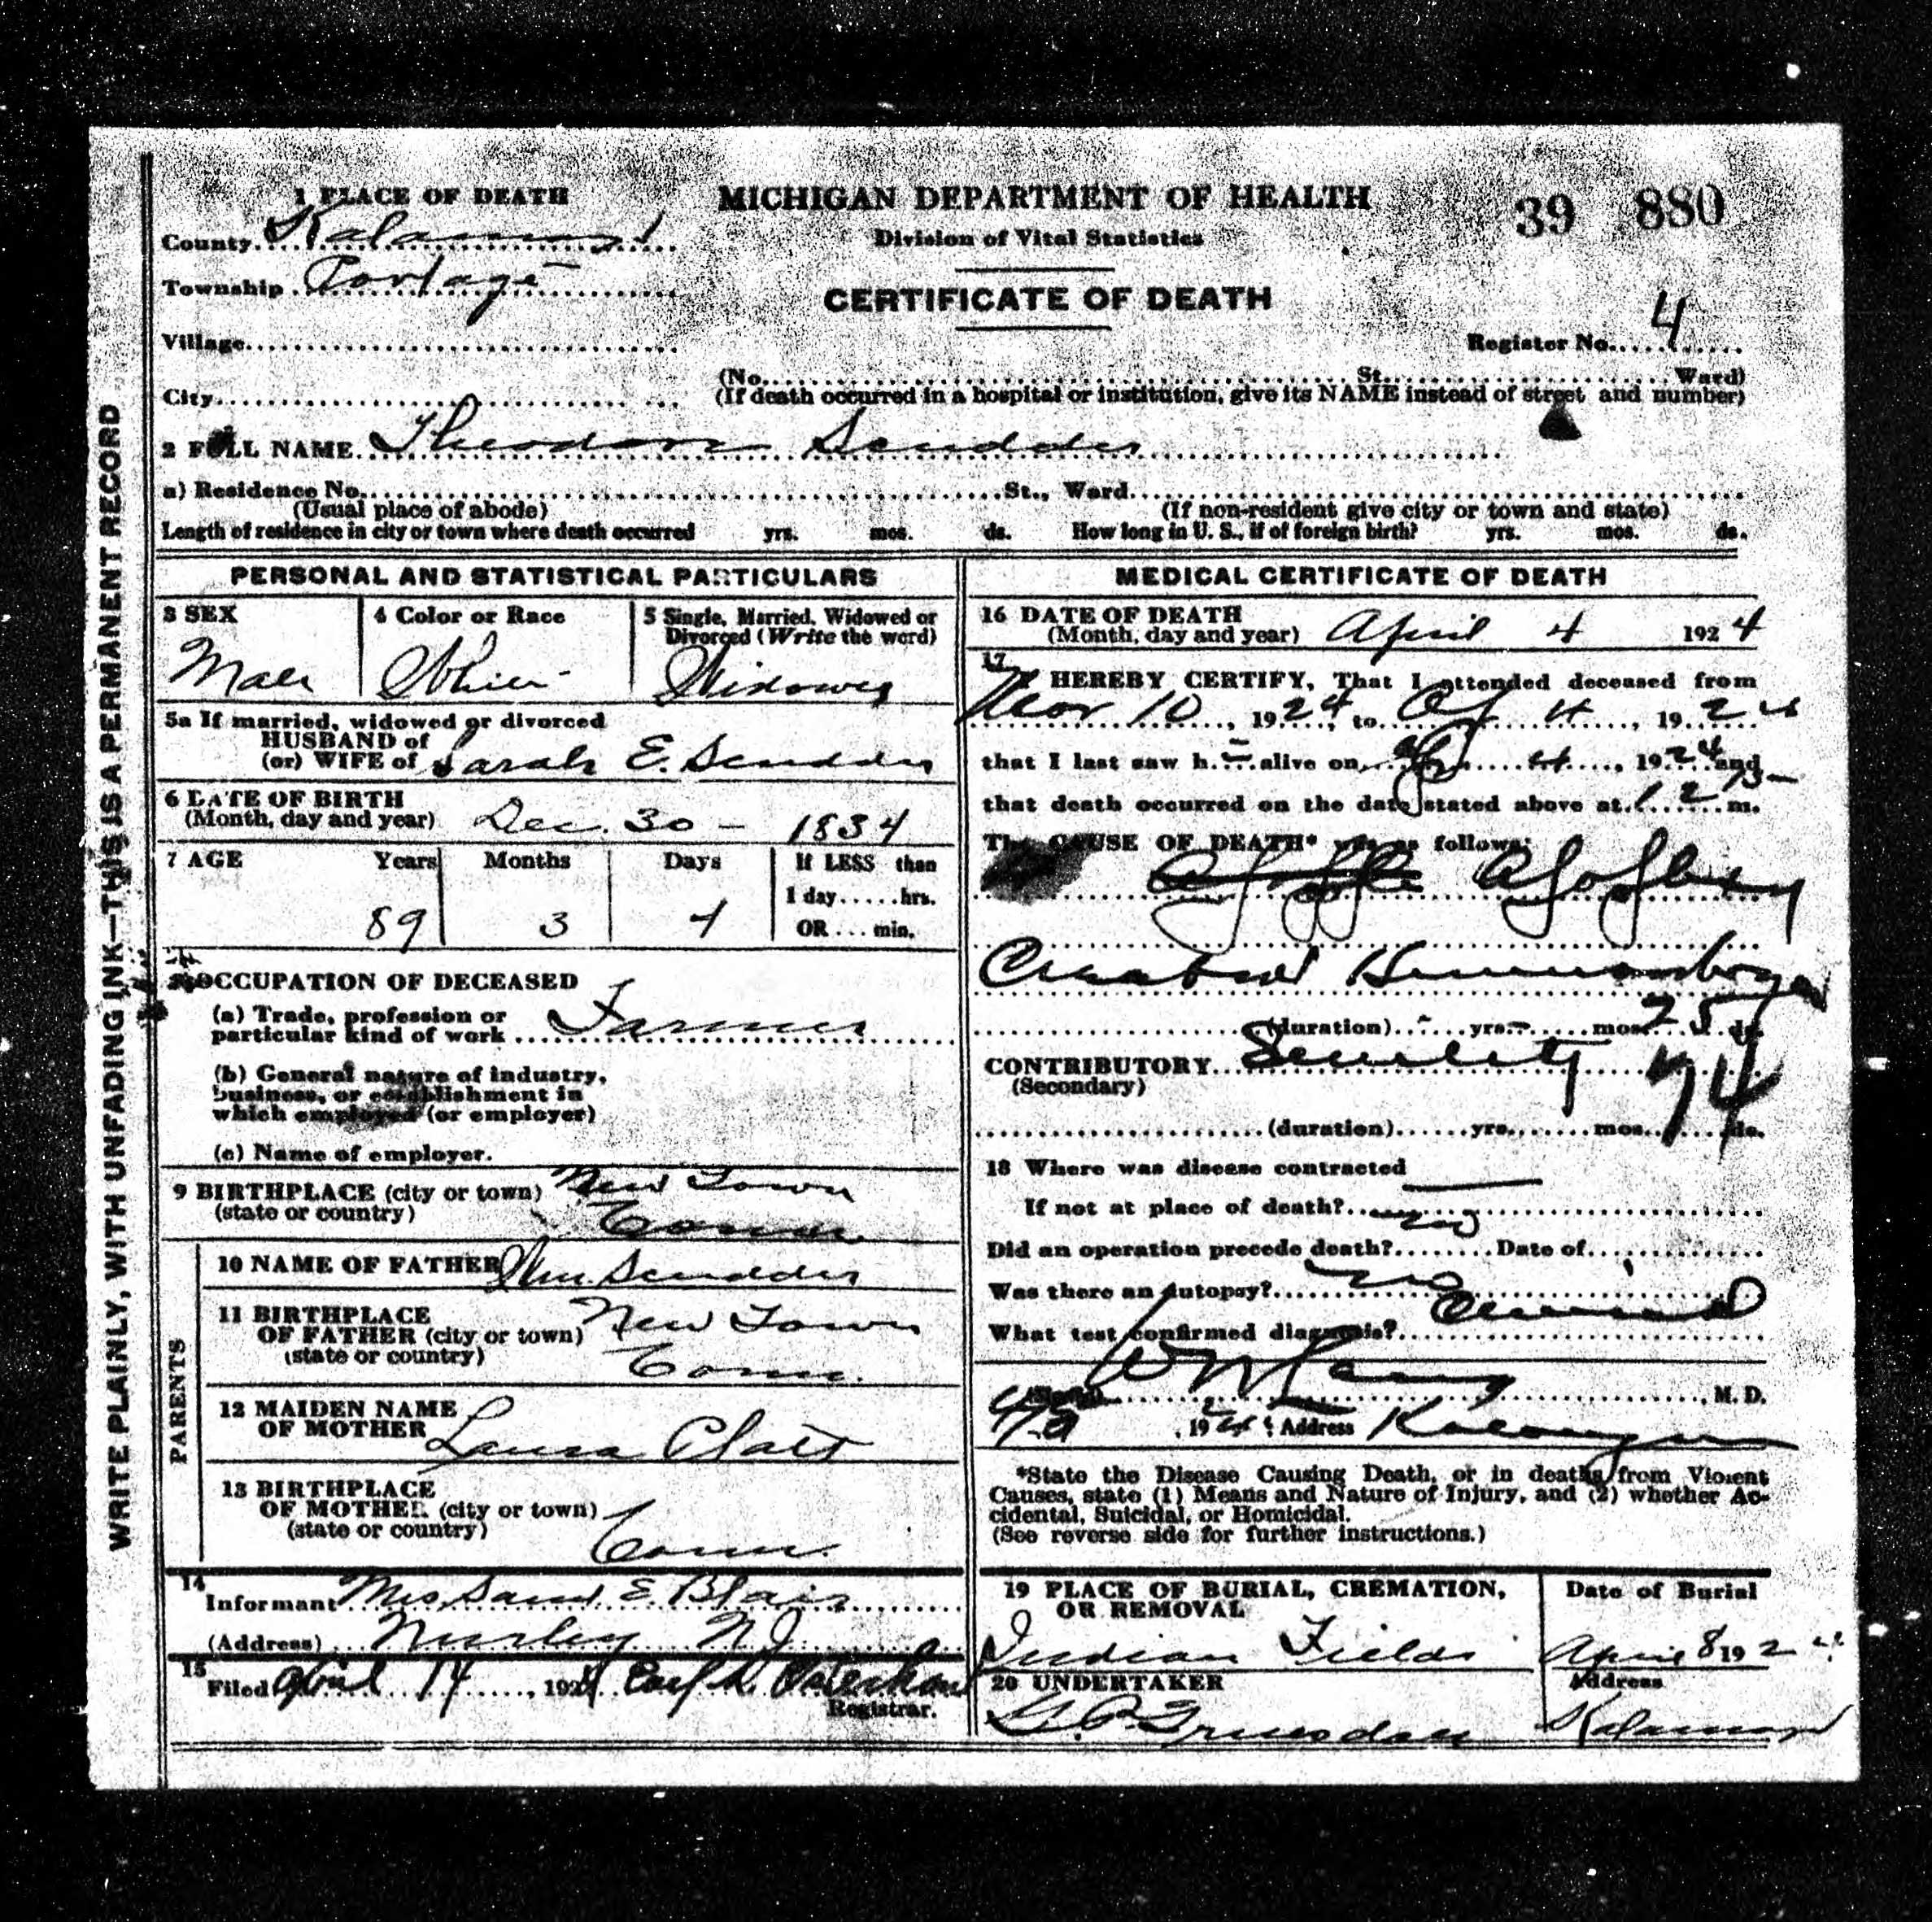 1 PLACE OF DEATH
MICHIGAN DEPARTMENT OF HEALTH
39 880
County
Division of Vital Statistics
Township Portage
CERTIFICATE OF DEATH
Village
Register No. 4
(No. St. Ward)
City
(If death occurred in a hospital or institution, give its NAME instead of street and number)
2 FULL NAME Theodore Scudder
a) Residence No. St., Ward
(Usual place of abode) (If non-resident give city or town and state)
Length of residence in city or town where death occurred yrs. mos. ds. How long in U. S., if of foreign birth? yrs. mos. ds.
WRITE PLAINLY, WITH UNFADING INK—THIS IS A PERMANENT RECORD
PERSONAL AND STATISTICAL PARTICULARS
3 SEX
Male
4 Color or Race
White
5 Single, Married, Widowed or
Divorced (Write the word)
Widower
5a If married, widowed or divorced
HUSBAND of
(or) WIFE of Sarah E. Scudder
6 DATE OF BIRTH
(Month, day and year) Dec. 30 - 1834
7 AGE Years Months Days If LESS than
1 day......hrs.
89 3 4 OR ... min.
8 OCCUPATION OF DECEASED
(a) Trade, profession or
particular kind of work Farmer
(b) General nature of industry,
business, or establishment in
which employed (or employer)
(c) Name of employer.
9 BIRTHPLACE (city or town) New Town
(state or country) Conn.
PARENTS
10 NAME OF FATHER Wm. Scudder
11 BIRTHPLACE
OF FATHER (city or town) New Town
(state or country) Conn.
12 MAIDEN NAME
OF MOTHER Laura Platt
13 BIRTHPLACE
OF MOTHER (city or town)
(state or country) Conn.
14
Informant Mrs E. Blair
(Address) N.J.
15
Filed April 14, 1924
Registrar.
MEDICAL CERTIFICATE OF DEATH
16 DATE OF DEATH
(Month, day and year) April 4 1924
17
I HEREBY CERTIFY, That I attended deceased from
10, 1924, to Ap 4, 1924
that I last saw h alive on Ap 4, 1924 and
that death occurred on the date stated above at m.
The CAUSE OF DEATH* was as follows:
Apoplexy
Hemmorhage
(duration) - yrs. - mos. 25 ds.
CONTRIBUTORY Senility 74
(Secondary)
(duration) yrs. mos. ds.
18 Where was disease contracted
If not at place of death?
Did an operation precede death? no Date of
Was there an autopsy? no
What test confirmed diagnosis?
, M. D.
, 1924 Address
*State the Disease Causing Death, or in deaths from Violent
Causes, state (1) Means and Nature of Injury, and (2) whether Ac-
cidental, Suicidal, or Homicidal.
(See reverse side for further instructions.)
19 PLACE OF BURIAL, CREMATION,
OR REMOVAL
Indian Fields
Date of Burial
April 8 1924
20 UNDERTAKER
Truesdale
Address